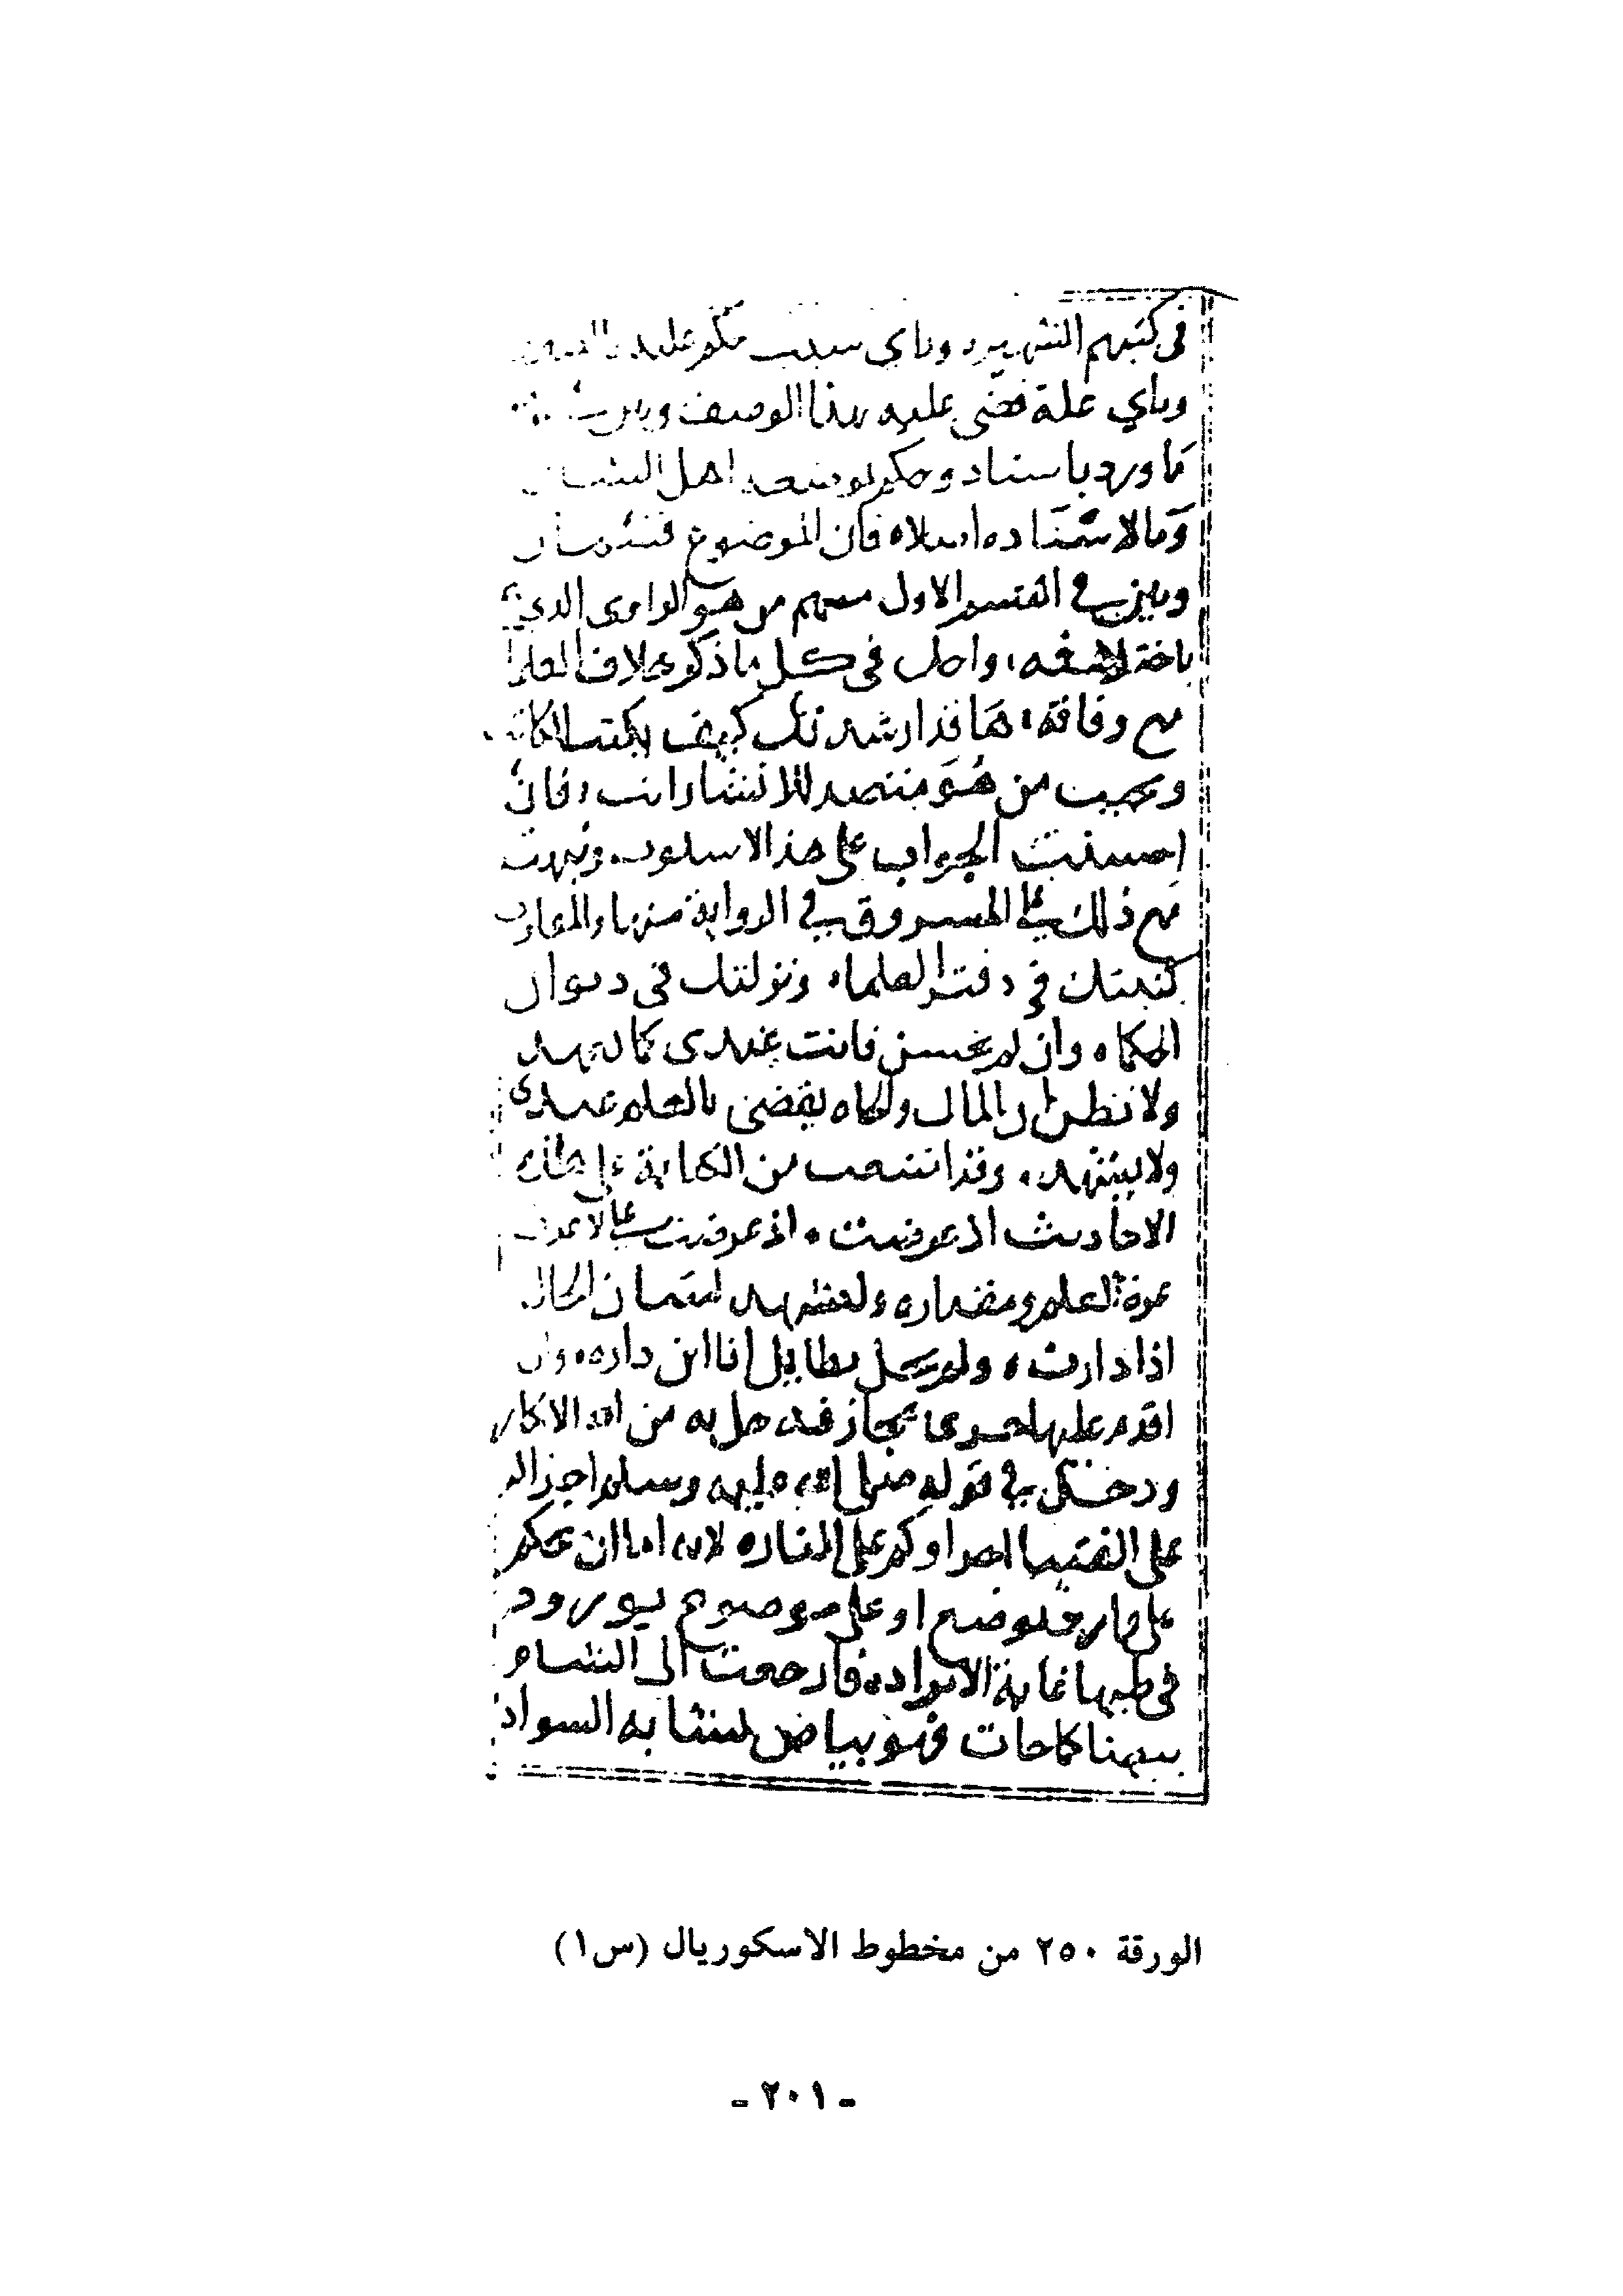 في كتبهم الشهيره وباي سبب حكم عليه
وباي علة قضى عليه بهذا الوصف وبين
ما ورد باسناد وحكم بوضعه اهل الشان
وما لا اسناده اصلاه فان الموضوع قسمان
وميز في القسم الاول منهم من هو الراوي الذي
باختلاقه، واحل في كل ما ذكر خلاف العلما
مع وفاقه، ها قد ارشدتك كيف يكتب الكاتب
ويجيب من هو منتصد للانتشارات، فان
احسنت الجواب على هذا الاسلوب. ونبهت
مع ذلك على المسروق في الرواية منها والمعارب
كتبتك في دفتر العلماء ونزلتك في ديوان
الحكماء وان لم تحسن فانت عندي كما تعهد
ولا تنظر ان المال والجاه يقضى بالعلم عندي
ولا يشهد، وقد اتنعجب من الكتابة على هذه
الاحاديث اذ عرفت، اذ عرفت
عزة العلم ومقداره ولتشهد لسان الحال
اذا دارت، ولم يحل بطايل انا ابن داره، وان
اقدم عليها احد بمجاز فه حل به من الله الانكار
ودخل في قوله صلى الله عليه وسلم اجراكم
على الفتيا اجراوكم على النار، لانه اما ان يحكم
على وارد بوضع او على موضوع بورود
في طيها غاية الابراد، فان رجعت الى الشام
ببيضا كما جات فهو بياض لمشابه السواد
الورقة ٢٥٠ من مخطوط الاسكوريال (س١)
- ٢٠١ -